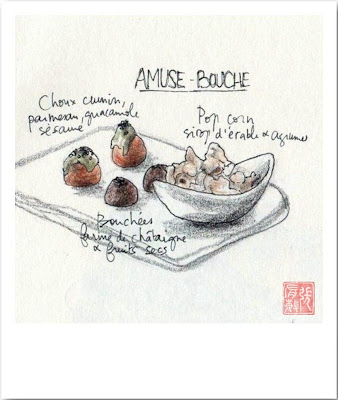 AMUSE-BOUCHE
Choux cumin,
parmesan, guacamole
sésame
Pop corn
sirop d'érable & agrumes
Bouchées
farine de châtaigne
& fruits secs